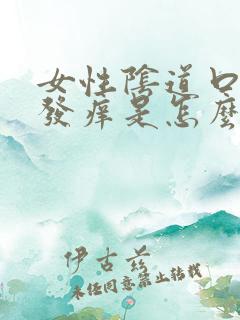 女性陰道口
發痒是怎麼
伊古茲
未經同意禁止轉載